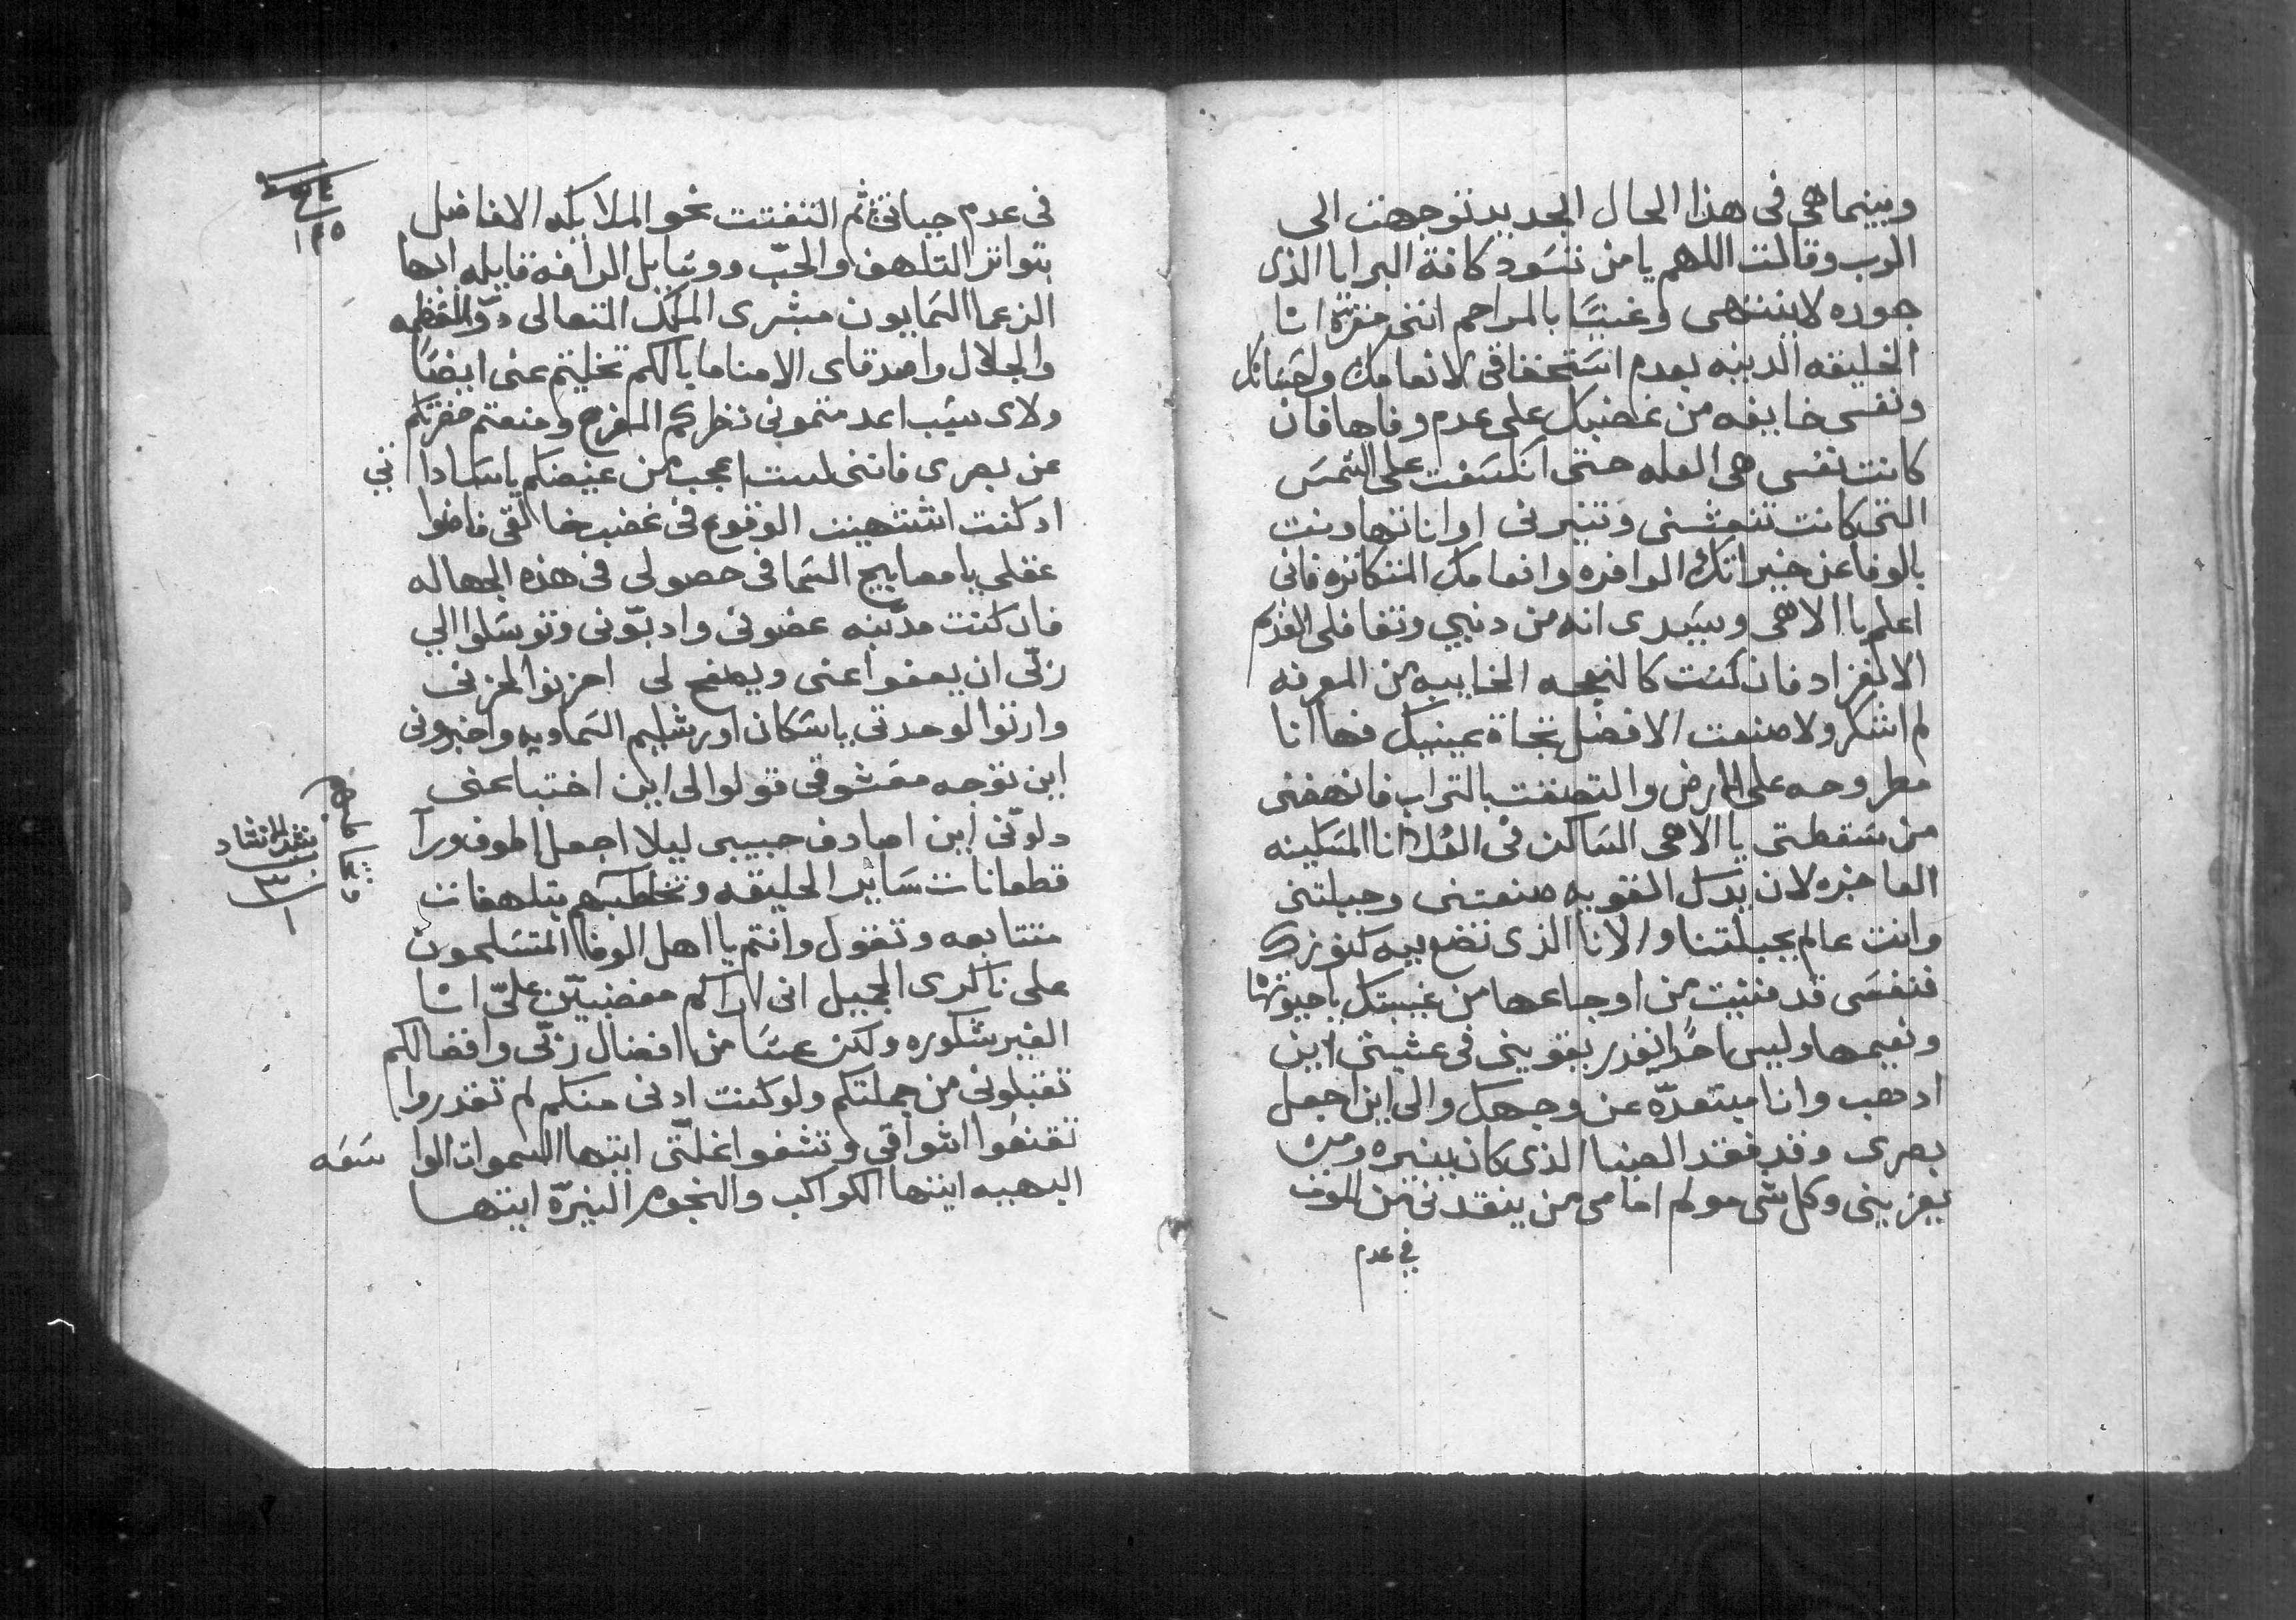 وبينما هى فى هذا الحال الجديد توجهت الى
الرب وقالت اللهم يا من تسود كافة البرايا الذى
جوده لا ينتهى وغنيًا بالمراحم اننى مقرة انا
الخليقه الدنيه بعدم استحقاقى لانعامك واحسانك
ونفسى خايفه من غضبك على عدم وفاها فان
كانت نفسى هى العله حتى انكسفت على الشمس
التى كانت تنعشنى وتنيرنى او انا تهاونت
بالوفا عن خيراتك الوافره وانعامك المتكاتره فانى
اعلم يا الاهى وسيدى انه من دنبي وتغافلى
الانفراد فان كنت كالنعجه الخايبه من المعرفه
لم اشكر ولا صنعت الافضل تجاة عينيك فها انا
مطروحه على الارض والتصقت بالتراب فانهضنى
من سقطتى يا الاهى الساكن فى العلا انا المسكينه
العاجزه لان يدك القويه صنعتنى وجبلتنى
وانت عالم بجبلتنا والانا الذى تضع فيه كنوزك
فنفسى قد فنيت من اوجاعها من غيبتك يا حيوتها
ونعيمها وليس احدًا يقدر يقوينى فى عشيتى اين
ادهب وانا مبتعدّه عن وجهك والى اين اجعل
بصرى وقد فقد الضيا الذى كان ينيره ومن
يعزينى وكل شى مولم امامى من ينقدنى من الموت
فى عدم
فى عدم حياتى ثم التفتت نحو الملايكه الافاضل
بتواتر التلهف والحبّ ووتايل الرافه قايله ايها
الزعما السمايون مبشرى الملك المتعالى دو العظمه
والجلال واصدقاى الامنا ما بالكم تخليتم عنى ايضًا
ولاى سبب اعدمتمونى نظركم المفرح ومنعتم حضرتكم
عن بصرى فاننى لست اعجب من غيضكم يا سادا تى
اد كنت اشتهيت الوقوع فى غضب خالقى فاضوا
عقلى يا مصابيح السما فى حصولى فى هذه الجهاله
فان كنت مدنبه عضونى وادبّونى وتوسلوا الي
ربّى ان يعفوا عنى ويصفح لى احزنوا لحزنى
وارتوا لوحدتى يا سكان اورشليم السماويه واخبرونى
اين توجه معشوقى قولوا لى اين اختبا عنى
دلوّنى اين اصادف حبيبى ليلا اجعل اطوف ورآ
قطعانات ساير الخليقه وتخاطبهم بتلهفات
متتابعه وتقول وانتم يا اهل الوفا المتسلمون
على ناكرى الجميل انى لاراكم مغضبيّن علىّ انا
الغير شكوره ولكن عسا من افضال ربّى وافضالكم
تقبلونى من جملتكم ولو كنت ادنى منكم لم تقدروا
تقنعوا اشواقى وتشفوا غلتّى ايتها السموات الوا سعه
البهيه ايتها الكواكب والنجوم النيّرة ايتها
١٢٥